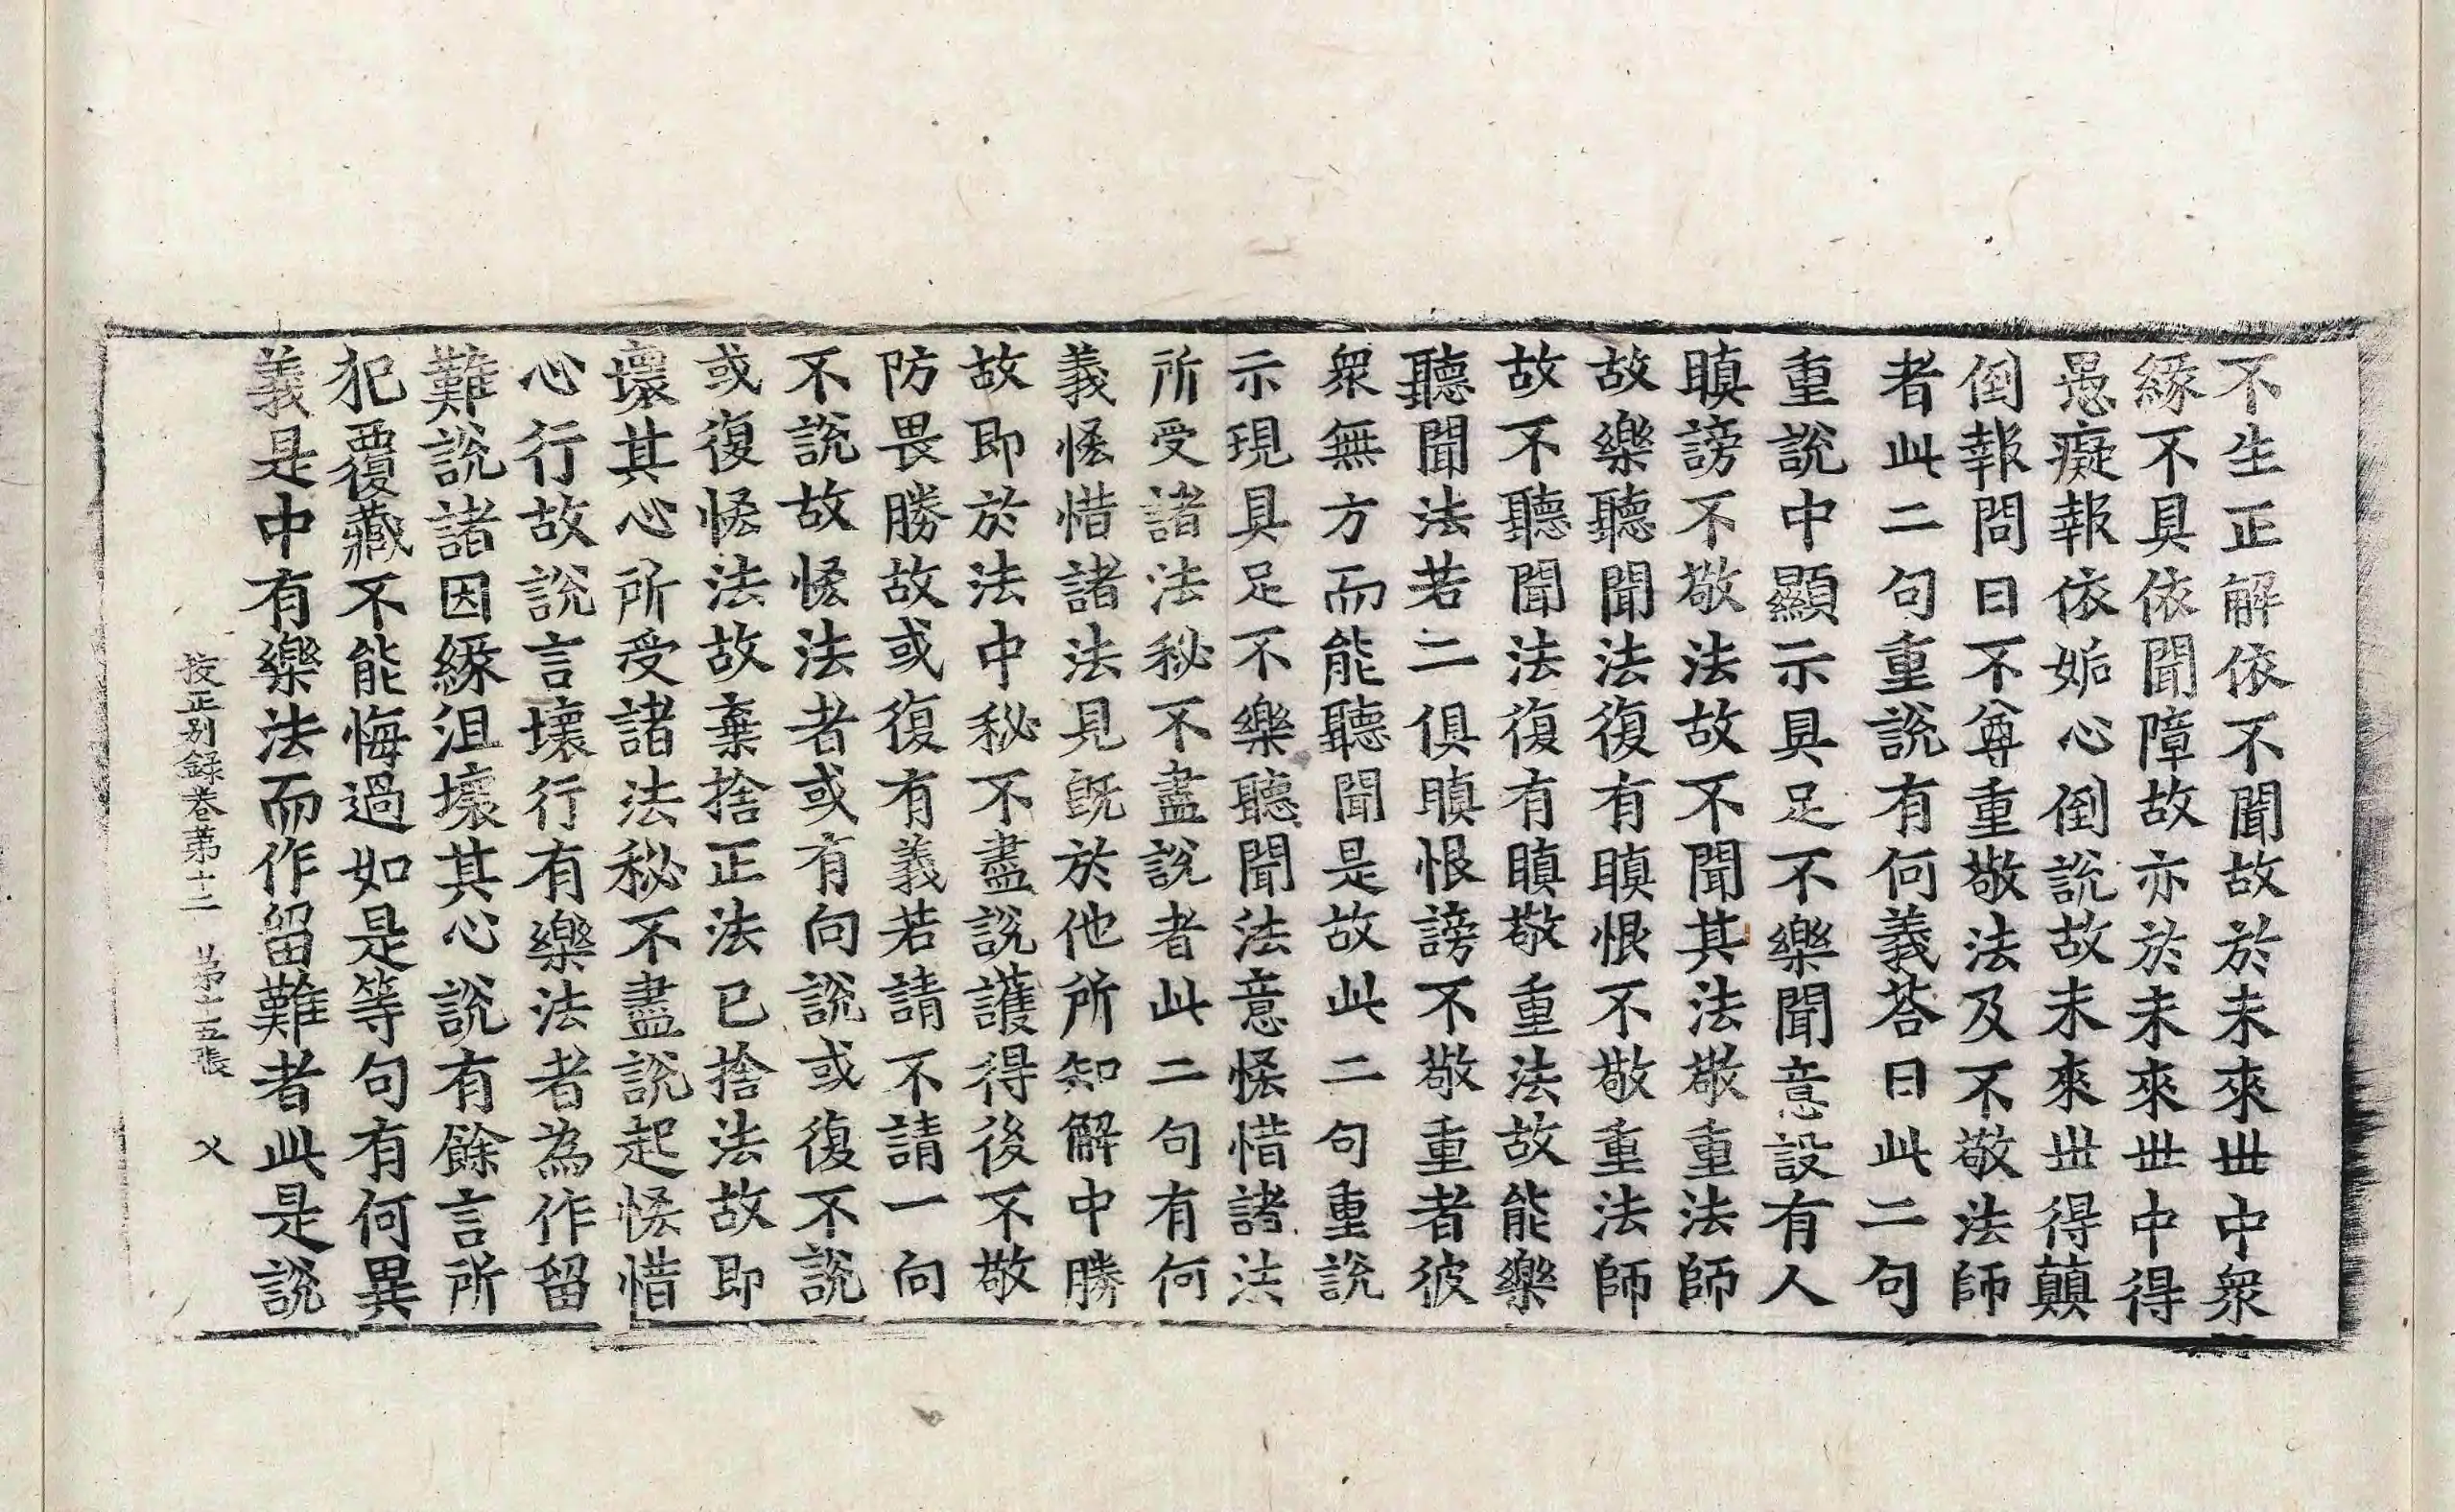 不生正解依不聞故於未來丗中衆
緣不具依聞障故亦於未來丗中得
愚癡報依妬心倒說故未來丗得顛
倒報問曰不尊重敬法及不敬法師
者此二句重說有何義荅曰此二句
重說中顯示具足不樂聞意設有人
瞋謗不敬法故不聞其法敬重法師
故樂聽聞法復有瞋恨不敬重法師
故不聽聞法復有瞋敬重法故能樂
聽聞法若二俱瞋恨謗不敬重者彼
衆無方而能聽聞是故此二句重說
示現具足不樂聽聞法意悋惜諸法
所受諸法秘不盡說者此二句有何
義悋惜諸法見旣於他所知解中勝
故即於法中秘不盡說護得後不敬
防畏勝故或復有義若請不請一向
不說故悋法者或有向說或復不說
或復悋法故棄捨正法已捨法故即
壞其心所受諸法秘不盡說起悋惜
心行故說言壞行有樂法者為作留
難說諸因緣沮壞其心說有餘言所
犯覆藏不能悔過如是等句有何異
義是中有樂法而作留難者此是說
挍正别錄卷苐十二 苐十五張 乂